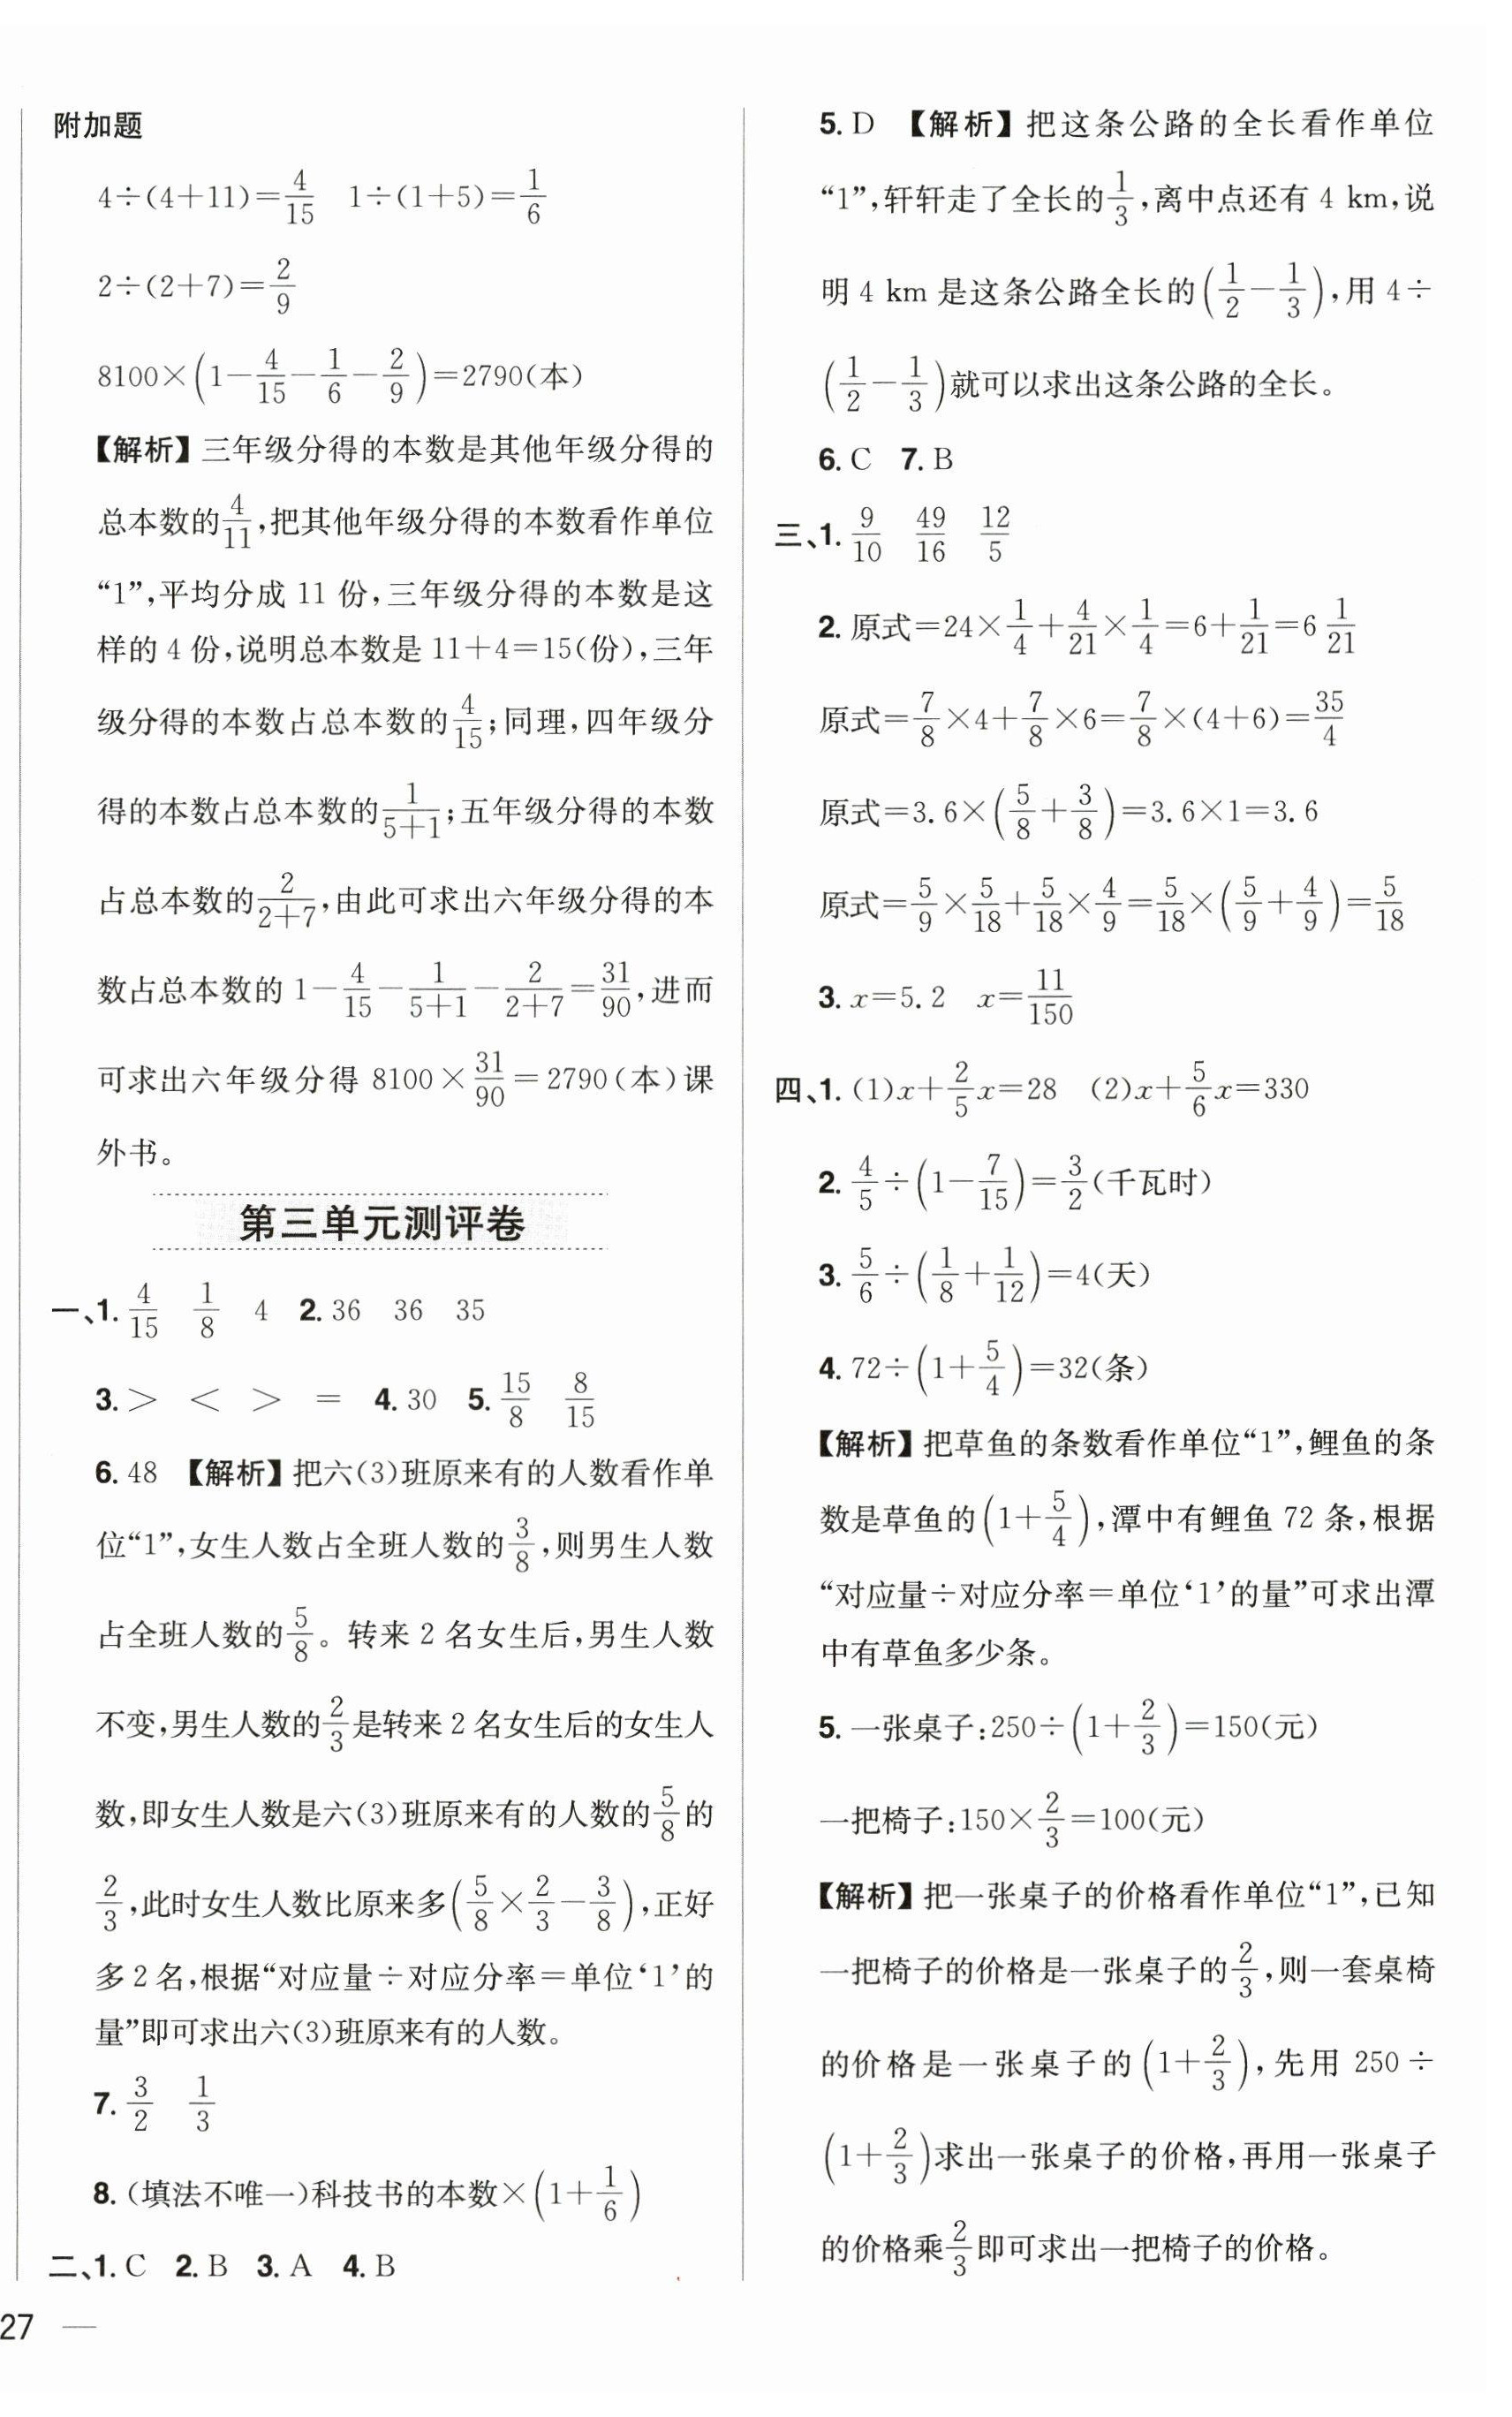 附加题
4÷(4+11)=4/15 1÷(1+5)=1/6
2÷(2+7)=2/9
8100×(1-4/15-1/6-2/9)=2790(本)
【解析】三年级分得的本数是其他年级分得的
总本数的4/11,把其他年级分得的本数看作单位
“1”,平均分成 11 份,三年级分得的本数是这
样的 4 份,说明总本数是 11+4=15(份),三年
级分得的本数占总本数的4/15;同理,四年级分
得的本数占总本数的1/(5+1);五年级分得的本数
占总本数的2/(2+7),由此可求出六年级分得的本
数占总本数的 1-4/15-1/(5+1)-2/(2+7)=31/90,进而
可求出六年级分得 8100×31/90=2790(本)课
外书。
第三单元测评卷
一、1. 4/15 1/8 4 2. 36 36 35
3. > < > = 4. 30 5. 15/8 8/15
6. 48 【解析】把六(3)班原来有的人数看作单
位“1”,女生人数占全班人数的3/8,则男生人数
占全班人数的5/8。转来 2 名女生后,男生人数
不变,男生人数的2/3是转来 2 名女生后的女生人
数,即女生人数是六(3)班原来有的人数的5/8的
2/3,此时女生人数比原来多(5/8×2/3-3/8),正好
多 2 名,根据“对应量÷对应分率=单位‘1’的
量”即可求出六(3)班原来有的人数。
7. 3/2 1/3
8. (填法不唯一)科技书的本数×(1+1/6)
二、1. C 2. B 3. A 4. B
27 —
5. D 【解析】把这条公路的全长看作单位
“1”,轩轩走了全长的1/3,离中点还有 4 km,说
明 4 km 是这条公路全长的(1/2-1/3),用 4÷
(1/2-1/3)就可以求出这条公路的全长。
6. C 7. B
三、1. 9/10 49/16 12/5
2. 原式=24×1/4+4/21×1/4=6+1/21=6 1/21
原式=7/8×4+7/8×6=7/8×(4+6)=35/4
原式=3.6×(5/8+3/8)=3.6×1=3.6
原式=5/9×5/18+5/18×4/9=5/18×(5/9+4/9)=5/18
3. x=5.2 x=11/150
四、1. (1)x+2/5x=28 (2)x+5/6x=330
2. 4/5÷(1-7/15)=3/2(千瓦时)
3. 5/6÷(1/8+1/12)=4(天)
4. 72÷(1+5/4)=32(条)
【解析】把草鱼的条数看作单位“1”,鲤鱼的条
数是草鱼的(1+5/4),潭中有鲤鱼 72 条,根据
“对应量÷对应分率=单位‘1’的量”可求出潭
中有草鱼多少条。
5. 一张桌子:250÷(1+2/3)=150(元)
一把椅子:150×2/3=100(元)
【解析】把一张桌子的价格看作单位“1”,已知
一把椅子的价格是一张桌子的2/3,则一套桌椅
的价格是一张桌子的(1+2/3),先用 250÷
(1+2/3)求出一张桌子的价格,再用一张桌子
的价格乘2/3即可求出一把椅子的价格。